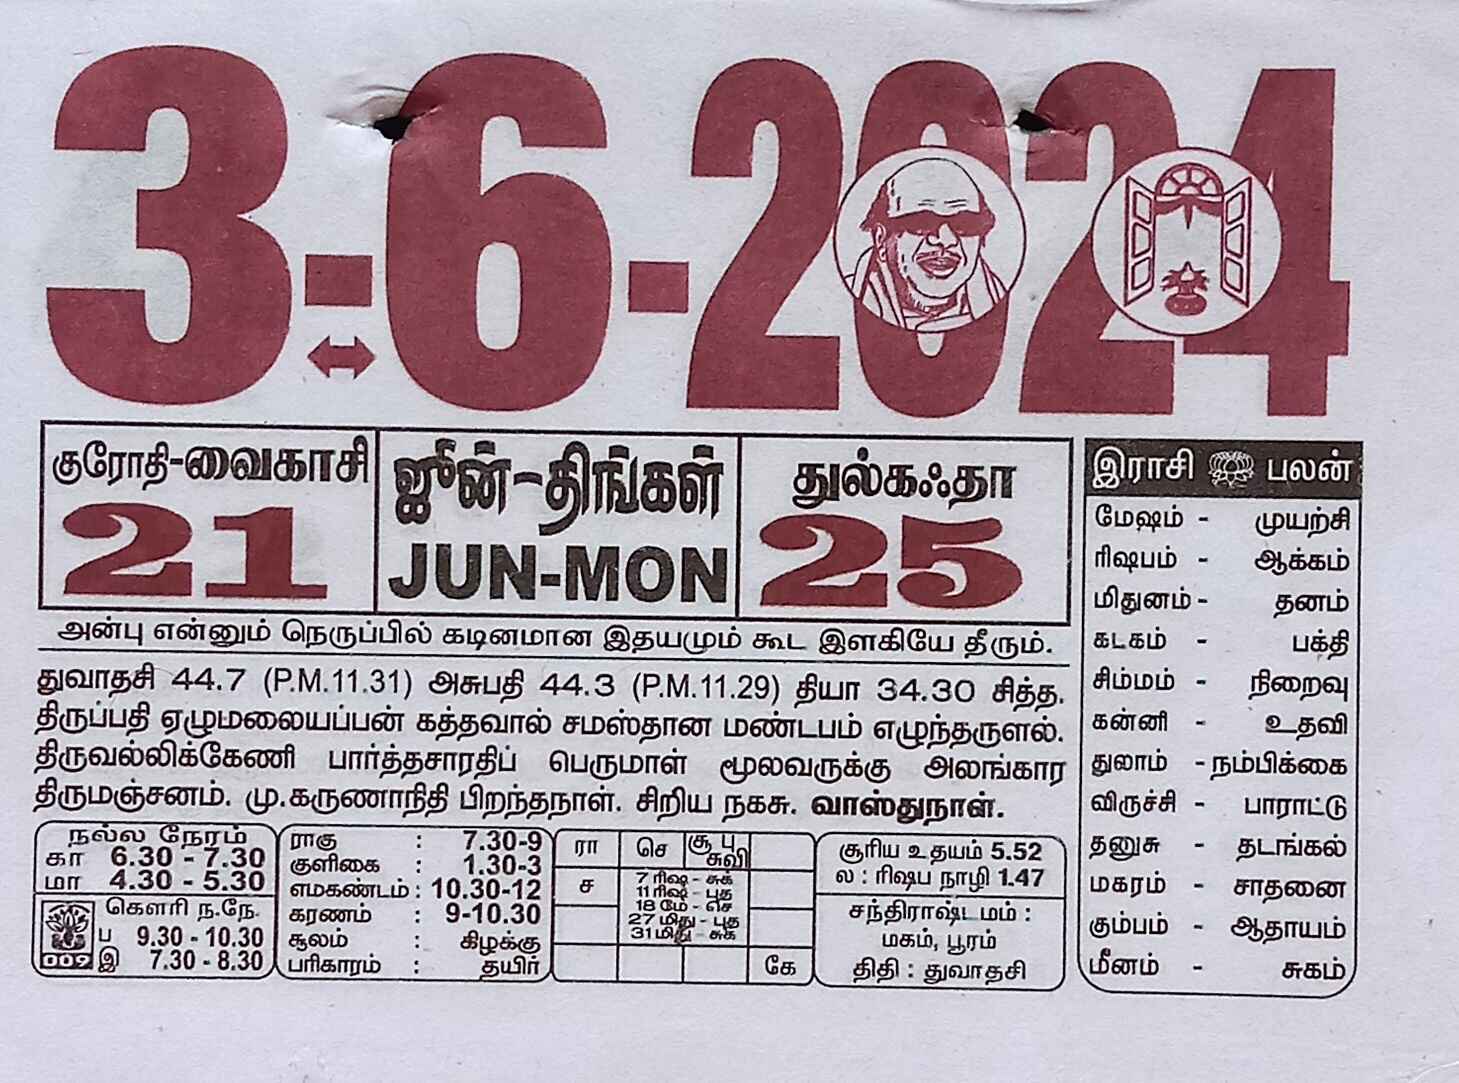 3-6-2024
குரோதி-வைகாசி
21
ஜுன்-திங்கள்
JUN-MON
துல்கஃதா
25
அன்பு என்னும் நெருப்பில் கடினமான இதயமும் கூட இளகியே தீரும்.
துவாதசி 44.7 (P.M.11.31) அசுபதி 44.3 (P.M.11.29) தியா 34.30 சித்த.
திருப்பதி ஏழுமலையப்பன் கத்தவால் சமஸ்தான மண்டபம் எழுந்தருளல்.
திருவல்லிக்கேணி பார்த்தசாரதிப் பெருமாள் மூலவருக்கு அலங்கார
திருமஞ்சனம். மு.கருணாநிதி பிறந்தநாள். சிறிய நகசு. வாஸ்துநாள்.
நல்ல நேரம்
கா 6.30 - 7.30
மா 4.30 - 5.30
கௌரி ந.நே.
ப 9.30 - 10.30
இ 7.30 - 8.30
009
ராகு : 7.30-9
குளிகை : 1.30-3
எமகண்டம் : 10.30-12
கரணம் : 9-10.30
சூலம் : கிழக்கு
பரிகாரம் : தயிர்
ரா செ சூ பு
சுவி
ச
7 ரிஷ - சுக்
11 ரிஷ - புத
18 மே - செ
27 மிது - புத
31 மிது - சுக்
கே
சூரிய உதயம் 5.52
ல : ரிஷப நாழி 1.47
சந்திராஷ்டமம் :
மகம், பூரம்
திதி : துவாதசி
இராசி பலன்
மேஷம் - முயற்சி
ரிஷபம் - ஆக்கம்
மிதுனம் - தனம்
கடகம் - பக்தி
சிம்மம் - நிறைவு
கன்னி - உதவி
துலாம் - நம்பிக்கை
விருச்சி - பாராட்டு
தனுசு - தடாங்கல்
மகரம் - சாதனை
கும்பம் - ஆதாயம்
மீனம் - சுகம்